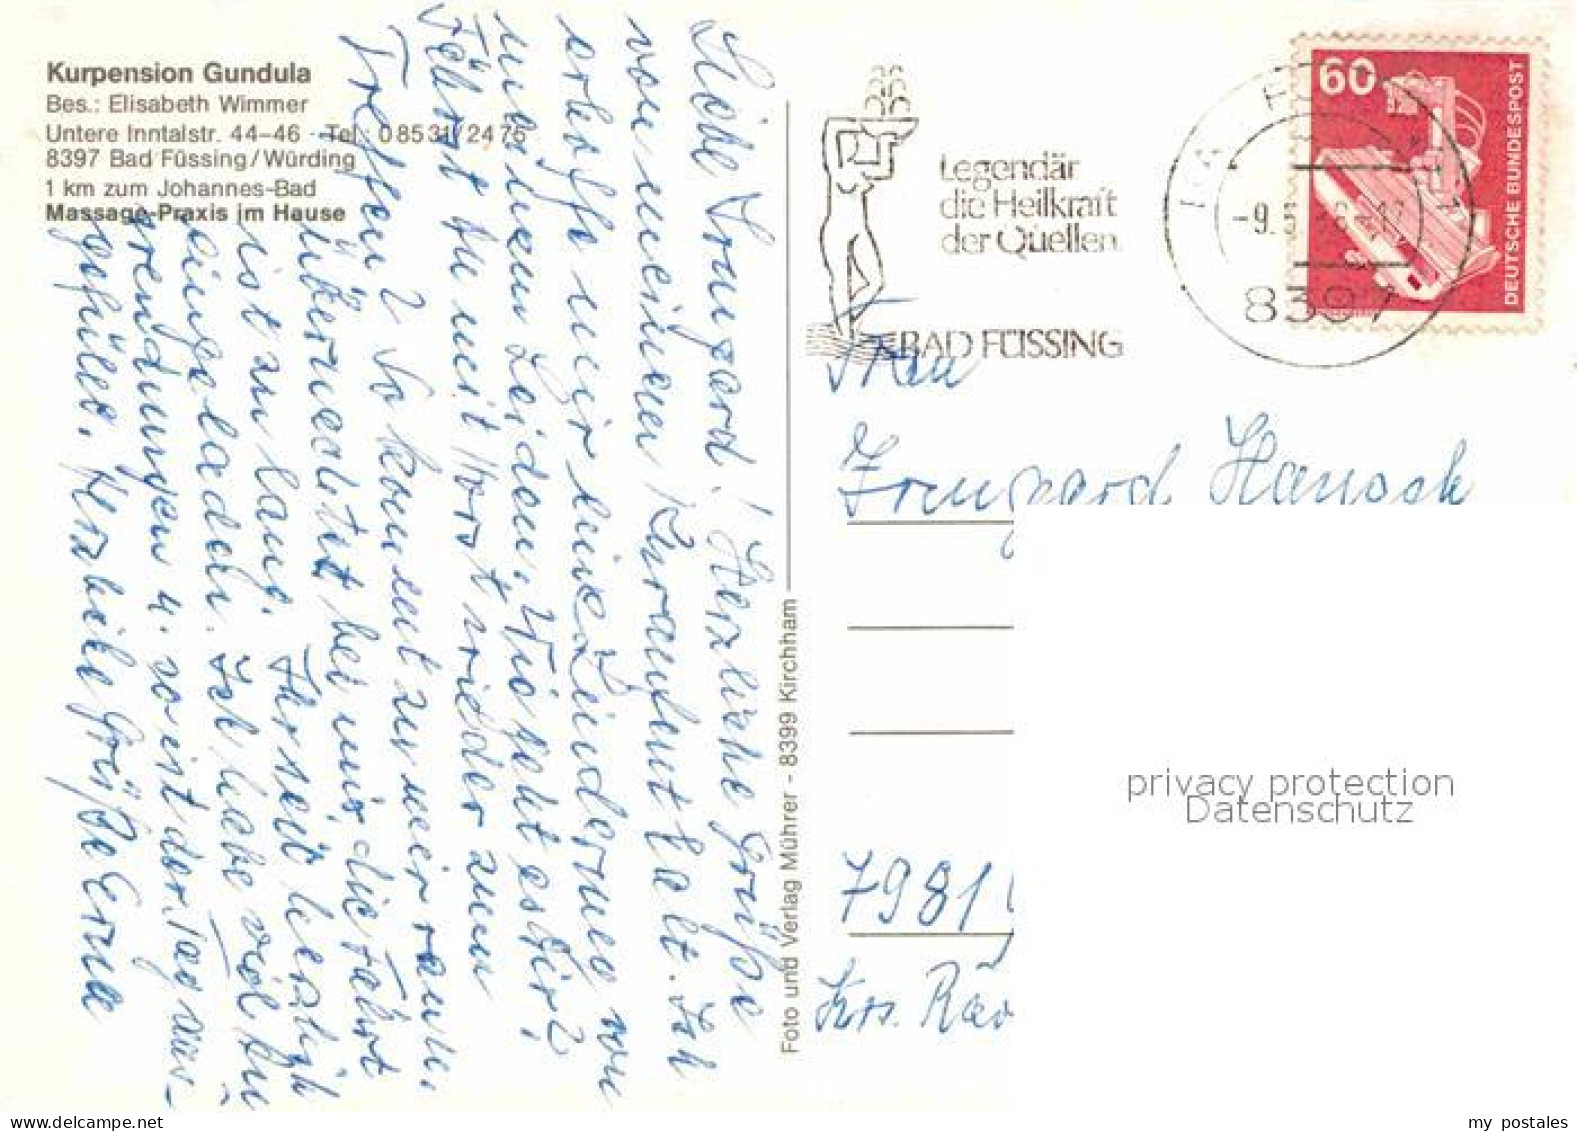 Kurpension Gundula
Bes.: Elisabeth Wimmer
Untere Inntalstr. 44–46 · Tel.: 0 85 31/24 76
8397 Bad Füssing/Würding
1 km zum Johannes-Bad
Massage-Praxis im Hause
Liebe Irmgard! Herzliche Grüße
von meinem Kuraufenthalt. Ich
erhoffe mir eine Linderung von
meinem Leiden. Wie geht es Dir?
Fährst du mit Horst wieder zum
Treffen? So kommt zu mir
Übernachtet bei mir, die Fahrt
ist zu lang. Ihr seid herzlich
eingeladen. Ich habe viel An
wendungen u. so ist der Tag aus-
gefüllt. Herzliche Grüße Erna
Foto und Verlag Mührer - 8399 Kirchham
Legendär
die Heilkraft
der Quellen.
BAD FÜSSING
8397
60
DEUTSCHE BUNDESPOST
Frau
Irmgard Hanosek
7981
Krs. Rav
privacy protection
Datenschutz
my postales